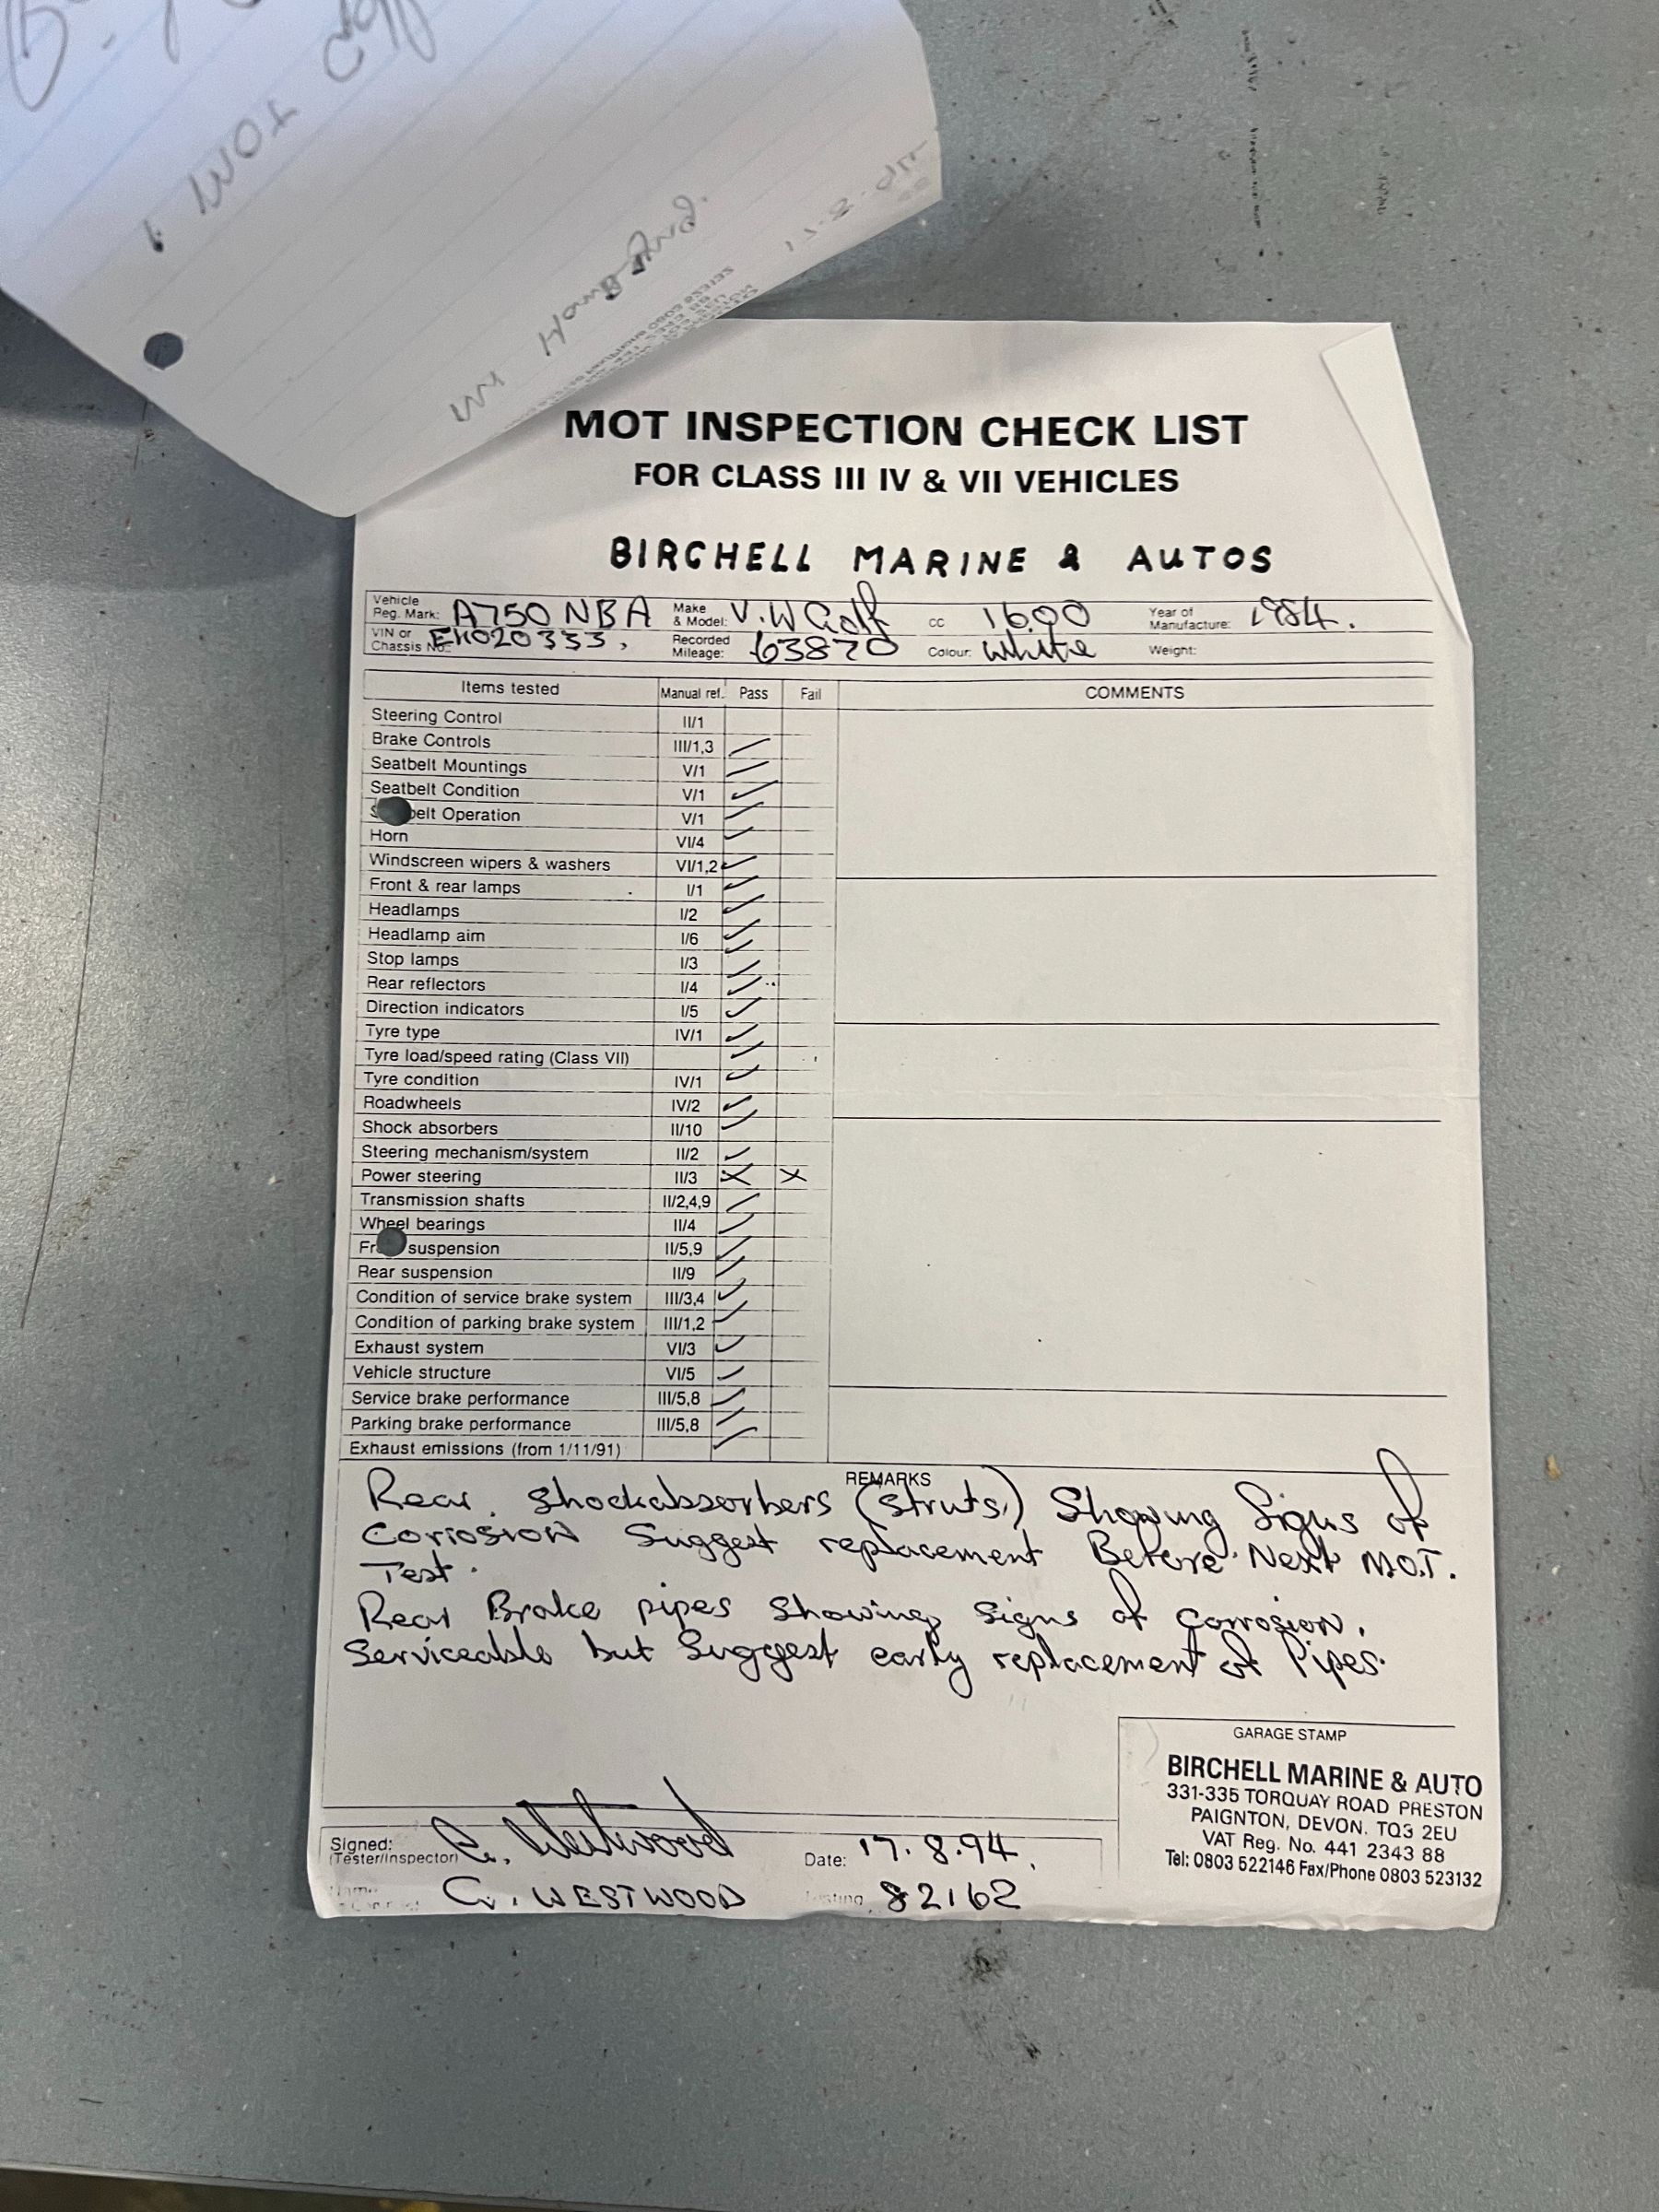 MOT INSPECTION CHECK LIST
FOR CLASS III IV & VII VEHICLES
BIRCHELL MARINE & AUTOS
Vehicle Reg. Mark: A750 NBA Make & Model: V.W Golf cc 1600 Year of Manufacture: 1984.
VIN or Chassis No.: EK020333, Recorded Mileage: 63870 Colour: white Weight:
Items tested Manual ref. Pass Fail COMMENTS
Steering Control II/1
Brake Controls III/1,3
Seatbelt Mountings V/1
Seatbelt Condition V/1
S belt Operation V/1
Horn VI/4
Windscreen wipers & washers VI/1,2
Front & rear lamps I/1
Headlamps I/2
Headlamp aim I/6
Stop lamps I/3
Rear reflectors I/4
Direction indicators I/5
Tyre type IV/1
Tyre load/speed rating (Class VII)
Tyre condition IV/1
Roadwheels IV/2
Shock absorbers II/10
Steering mechanism/system II/2
Power steering II/3 X X
Transmission shafts II/2,4,9
Wheel bearings II/4
Fr suspension II/5,9
Rear suspension II/9
Condition of service brake system III/3,4
Condition of parking brake system III/1,2
Exhaust system VI/3
Vehicle structure VI/5
Service brake performance III/5,8
Parking brake performance III/5,8
Exhaust emissions (from 1/11/91)
REMARKS
Rear Shockabsorbers (struts.) Showing Signs of
Corrosion Suggest replacement Before Next M.O.T.
Test.
Rear Brake pipes showing signs of corrosion.
Serviceable but suggest early replacement of Pipes.
GARAGE STAMP
BIRCHELL MARINE & AUTO
331-335 TORQUAY ROAD PRESTON
PAIGNTON, DEVON. TQ3 2EU
VAT Reg. No. 441 2343 88
Tel: 0803 522146 Fax/Phone 0803 523132
Signed: (Tester/Inspector) G. Westwood Date: 17.8.94.
Name G. WESTWOOD 82162